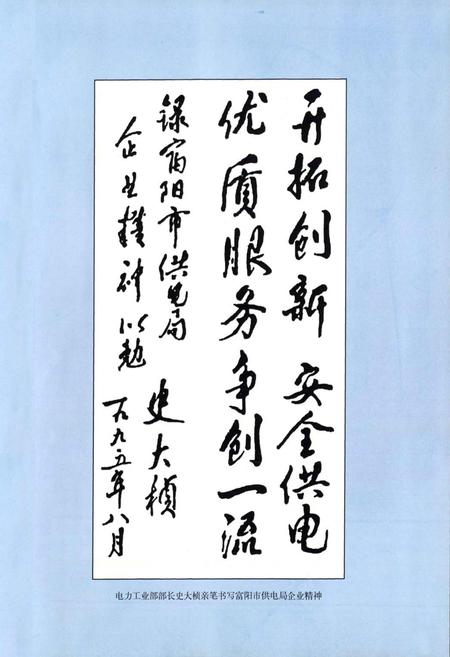 开拓创新 安全供电
优质服务争创一流
录富阳市供电局
企业精神以勉
史大桢
一九九五年八月
电力工业部部长史大桢亲笔书写富阳市供电局企业精神